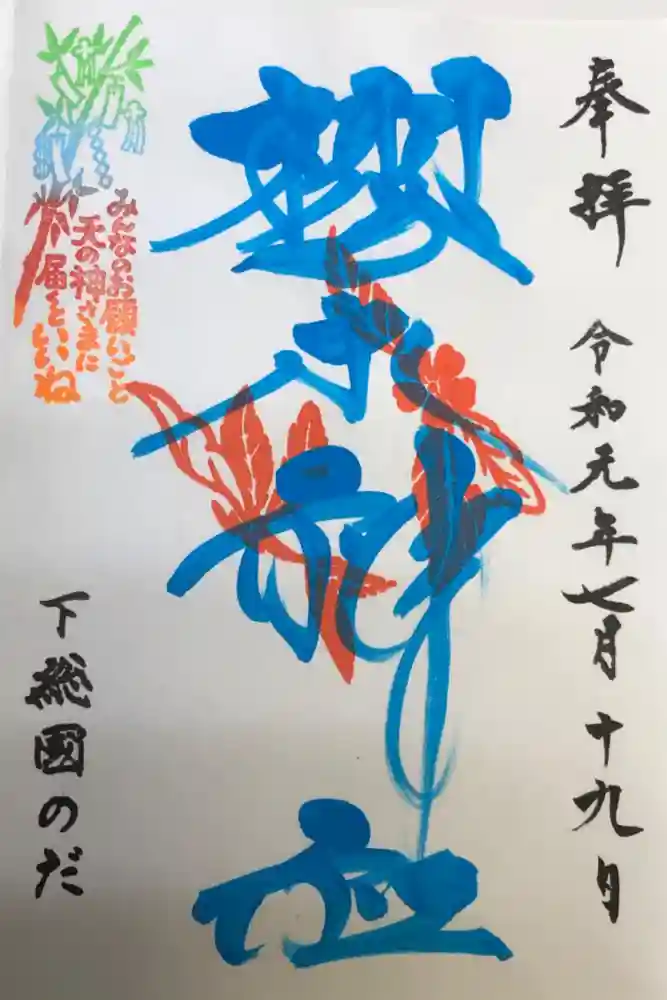 奉拝 令和元年七月十九日
櫻木神社
みんなのお願いごと
天の神さまに
届くといいね
下総國のだ